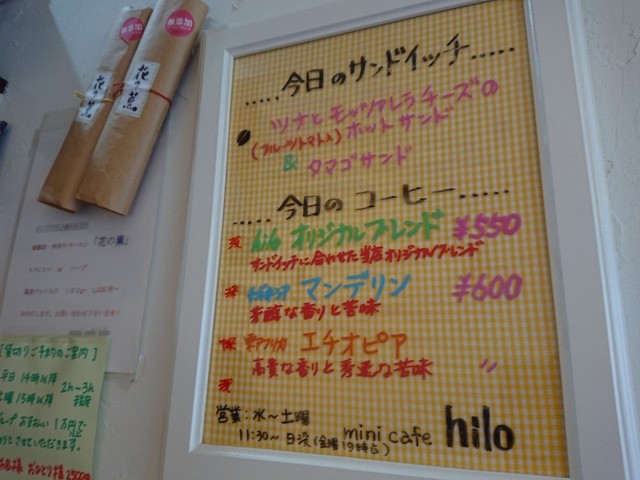 無添加
無添加
花の薫
花の薫
「花の薫」
.....今日のサンドイッチ.....
ツナと モッツァレラチーズの
(フルーツトマト入) ホットサンド
&
タマゴサンド
.....今日のコーヒー.....
深 hilo オリジナルブレンド ¥550
サンドイッチに合わせた当店オリジナルブレンド
深 マンデリン ¥600
芳醇な香りと苦味
東アフリカ エチオピア
高貴な香りと 〃
深
営業:水〜土曜
11:30〜日没(金曜19時迄)
mini cafe hilo
[貸切りご予約のご案内]
平日 14時以降 2h〜3h
土曜 15時以降
1万円で
とさせていただきます。
おひとり様 2500円